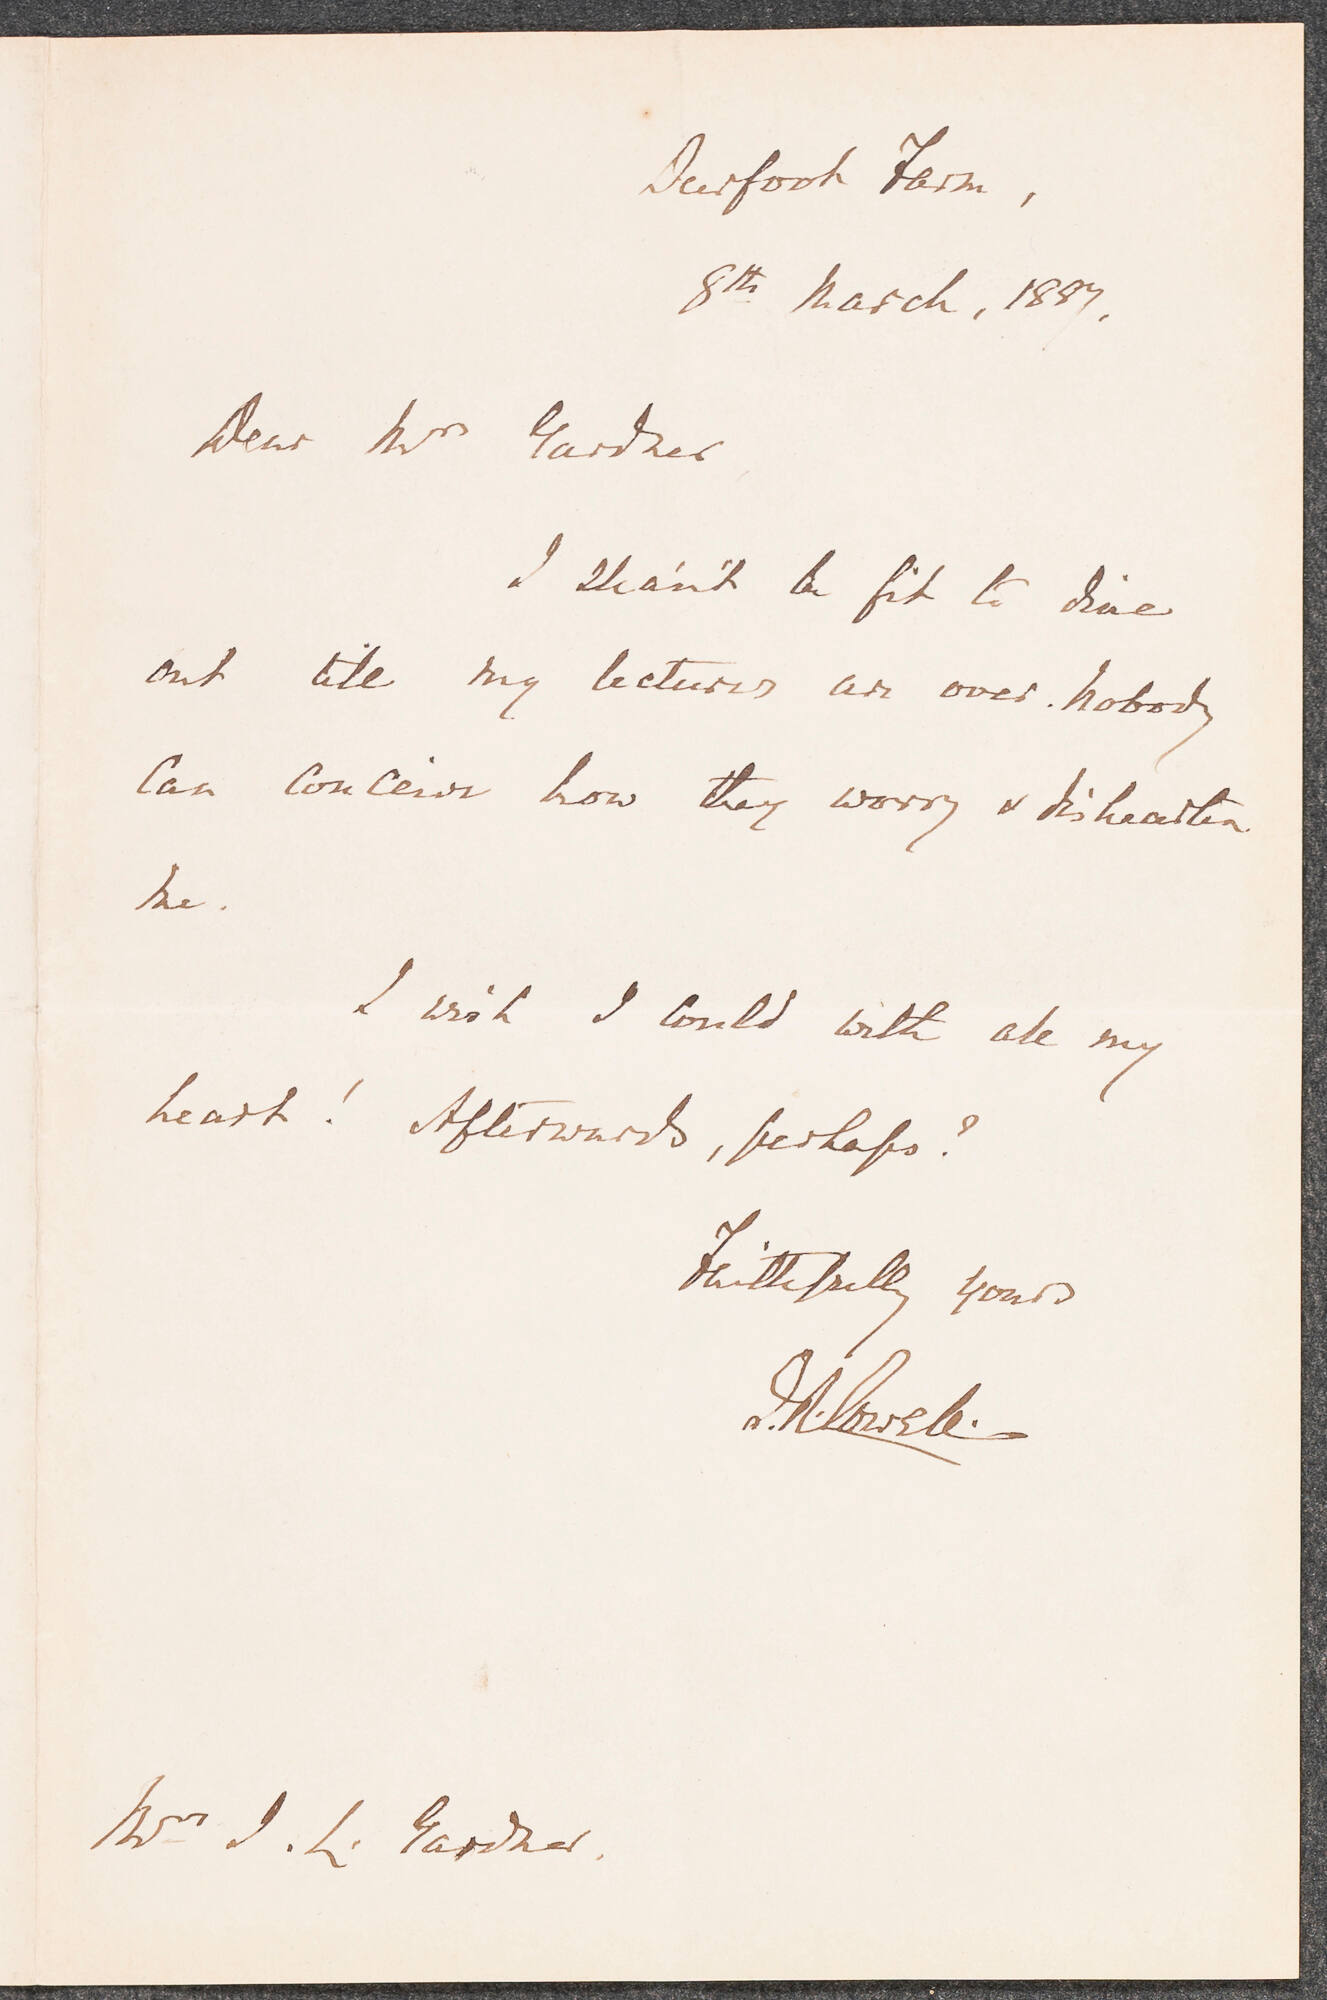 Deerfoot Farm,
8th March, 1887.
Dear Mrs Gardner
I sha'n't be fit to dine
out till my lectures are over. Nobody
can conceive how they worry & dishearten
me.
I wish I could with all my
heart! Afterwards, perhaps?
Faithfully yours
J. R. Lowell.
Mrs J. L. Gardner.